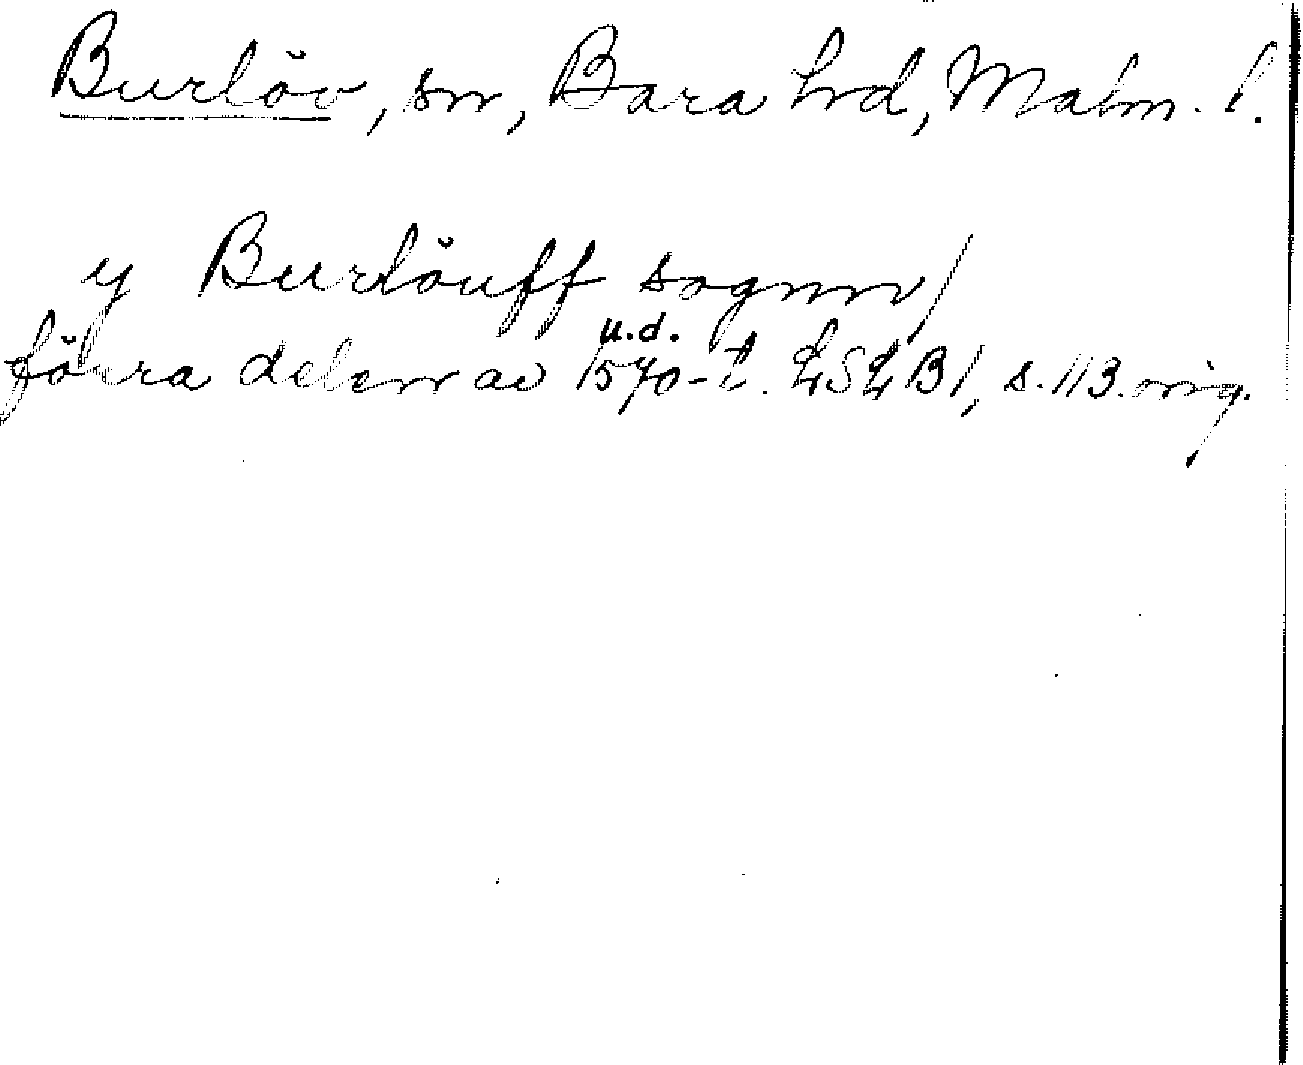 Burlöv, sn, Bara hd, Malm. l.
y Burlöuff sognn/
u.d.
förra delen av 1570-t. LSLB1, s. 113. orig.